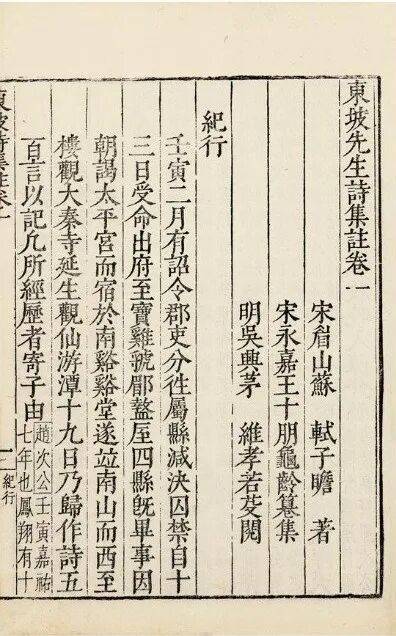 東坡先生詩集註卷一
宋眉山蘇　軾子瞻　著
宋永嘉王十朋龜齡纂集
明吳興茅　維孝若芟閱
紀行
壬寅二月有詔令郡吏分徃屬縣減決囚禁自十
三日受命出府至寶雞虢郿盩厔四縣旣畢事因
朝謁太平宮而宿於南谿谿堂遂竝南山而西至
樓觀大秦寺延生觀仙游潭十九日乃歸作詩五
百言以記凢所經歷者寄子由
趙次公壬寅嘉祐
七年也鳳翔有十
東坡詩集註卷一
紀行
一